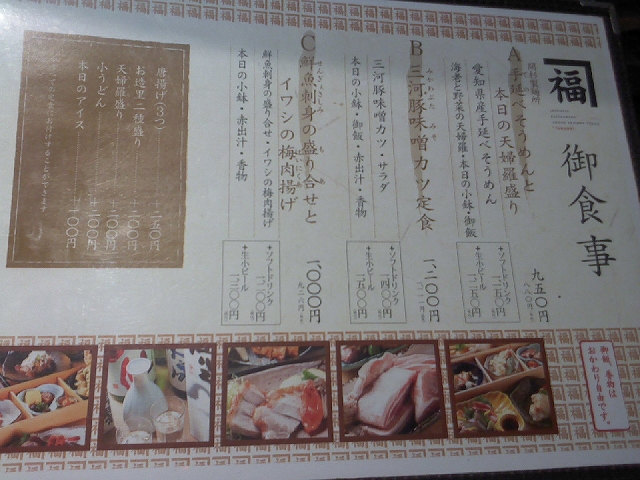 福
御食事
A 手延べそうめんと
本日の天婦羅盛り
九五〇円
愛知県産手延べそうめん
海老と野菜の天婦羅・本日の小鉢・御飯
+ソフトドリンク
一一五〇円
+生小ビール
一二五〇円
B 三河豚味噌カツ定食
一、二〇〇円
三河豚味噌カツ・サラダ
本日の小鉢・御飯・赤出汁・香物
+ソフトドリンク
一四〇〇円
+生小ビール
一五〇〇円
C 鮮魚刺身の盛り合せと
イワシの梅肉揚げ
一、〇〇〇円
鮮魚刺身の盛り合せ・イワシの梅肉揚げ
本日の小鉢・赤出汁・香物
+ソフトドリンク
一二〇〇円
+生小ビール
一三〇〇円
唐揚げ(3つ)
+二五〇円
お造里二種盛り
+三〇〇円
天婦羅盛り
+三〇〇円
小うどん
+二〇〇円
本日のアイス
+一〇〇円
御飯、香物は
おかわり自由です。